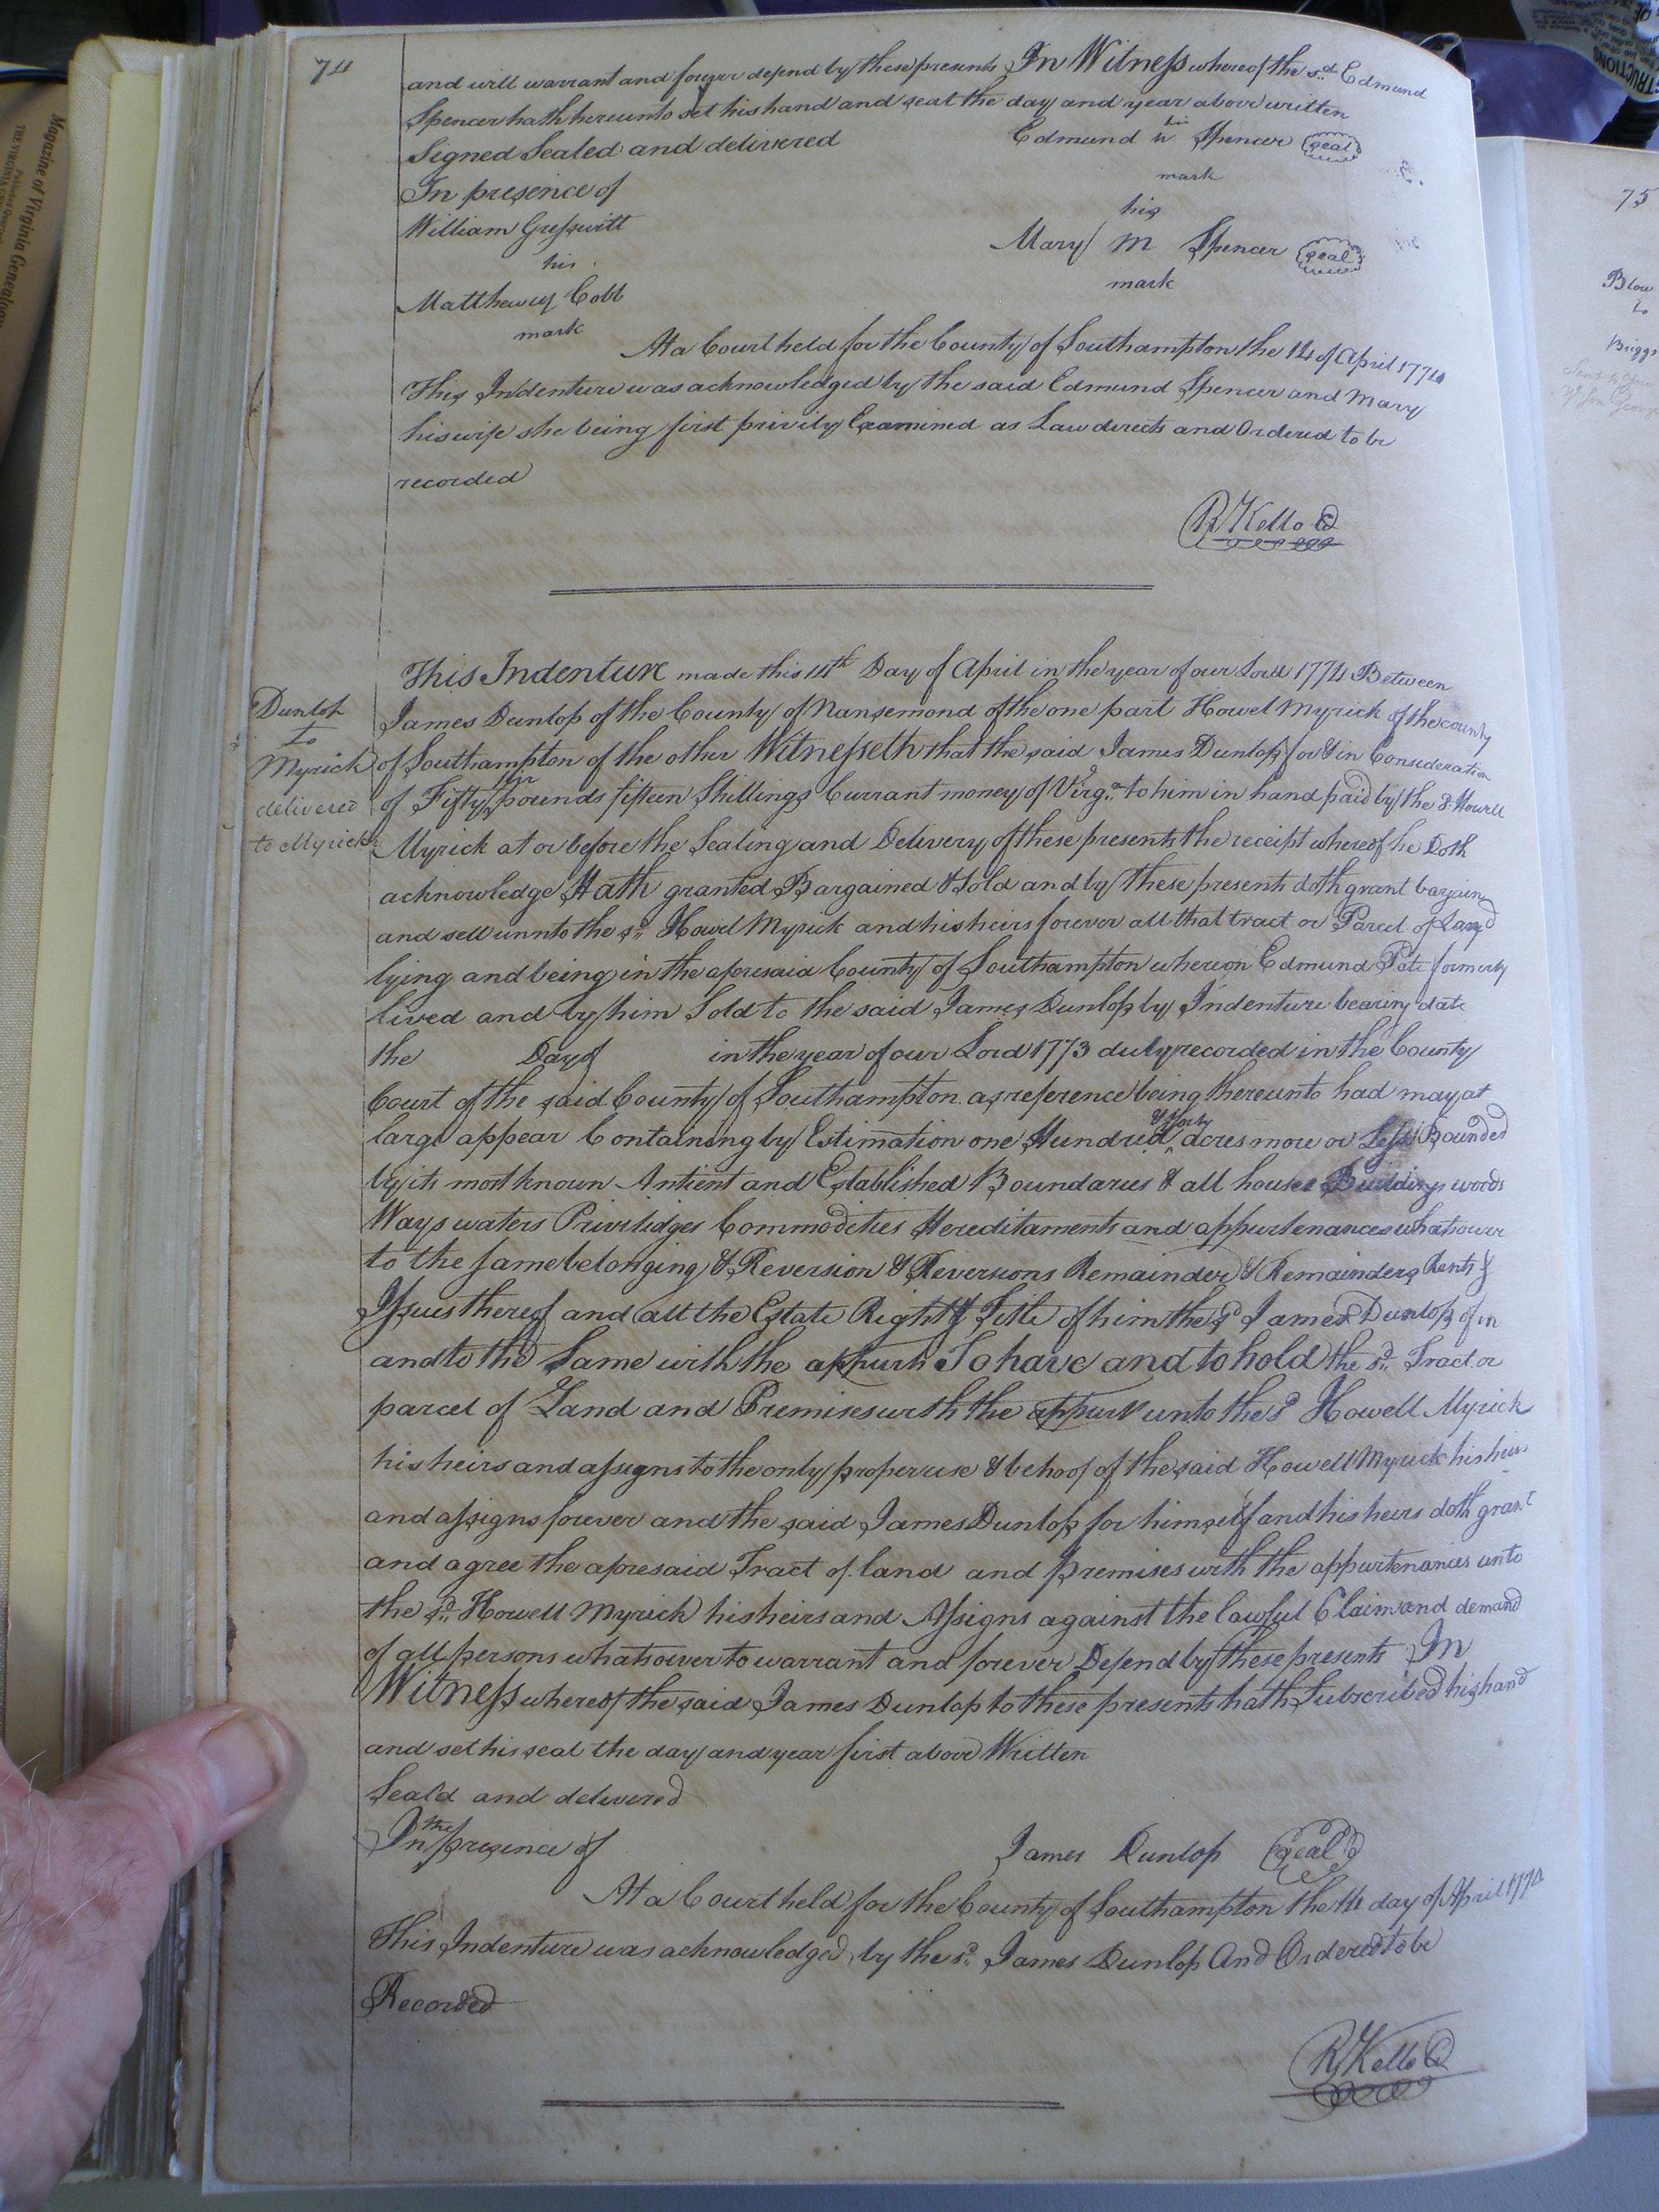 74
and will warrant and forever defend by these presents In Witness whereof the sd. Edmund
Spencer hath hereunto set his hand and seal the day and year above written
Signed Sealed and delivered
Edmund his Spencer seal
mark
In presence of
William Gresswitt
his
Mary M Spencer seal
mark
his
Matthew Cobb
mark
At a Court held for the County of Southampton the 14 of April 1774
This Indenture was acknowledged by the said Edmund Spencer and Mary
his wife she being first privily Examined as Law directs and Ordered to be
recorded
R Kello C
Dunlop
to
Myrick
delivered
to Myrick
This Indenture made this 14th Day of April in the year of our Lord 1774 Between
James Dunlop of the County of Nansemond of the one part Howel Myrick of the county
of Southampton of the other Witnesseth that the said James Dunlop for & in Consideration
of Fifty six pounds fifteen Shillings Currant money of Virga. to him in hand paid by the sd. Howell
Myrick at or before the Sealing and Delivery of these presents the receipt whereof he Doth
acknowledge Hath granted Bargained & Sold and by these presents doth grant bargain
and sell unnto the sd. Howel Myrick and his heirs forever all that tract or Parcel of Land
lying and being in the aforesaid County of Southampton whereon Edmund Pate formerly
lived and by him Sold to the said James Dunlop by Indenture bearing date
the Day of in the year of our Lord 1773 duly recorded in the County
Court of the said County of Southampton as reference being thereunto had may at
large appear Containing by Estimation one Hundred & forty acres more or Less Bounded
by its most known Antient and Established Boundaries & all houses Buildings woods
Ways waters Privilidges Commodities Hereditaments and appurtenances whatsoever
to the same belonging & Reversion & Reversions Remainder & Remainders Rents &
Issues thereof and all the Estate Right & Title of him the sd. James Dunlop of in
and to the Same with the appurts To have and to hold the sd. Tract or
parcel of Land and Premises with the appurts unto the sd. Howell Myrick
his heirs and assigns to the only proper use & behoof of the said Howell Myrick his heirs
and assigns forever and the said James Dunlop for himself and his heirs doth grant
and agree the aforesaid Tract of land and premises with the appurtenances unto
the sd. Howell Myrick his heirs and Assigns against the lawful Claim and demand
of all persons whatsoever to warrant and forever Defend by these presents In
Witness whereof the said James Dunlop to these presents hath Subscribed his hand
and set his seal the day and year first above Written
Seald and delivered
In the presence of
James Dunlop Seal
At a Court held for the County of Southampton the 14 day of April 1774
This Indenture was acknowledged by the sd. James Dunlop And Ordered to be
Recorded
R Kello C
75
Blow
to
Briggs
Magazine of Virginia Genealogy